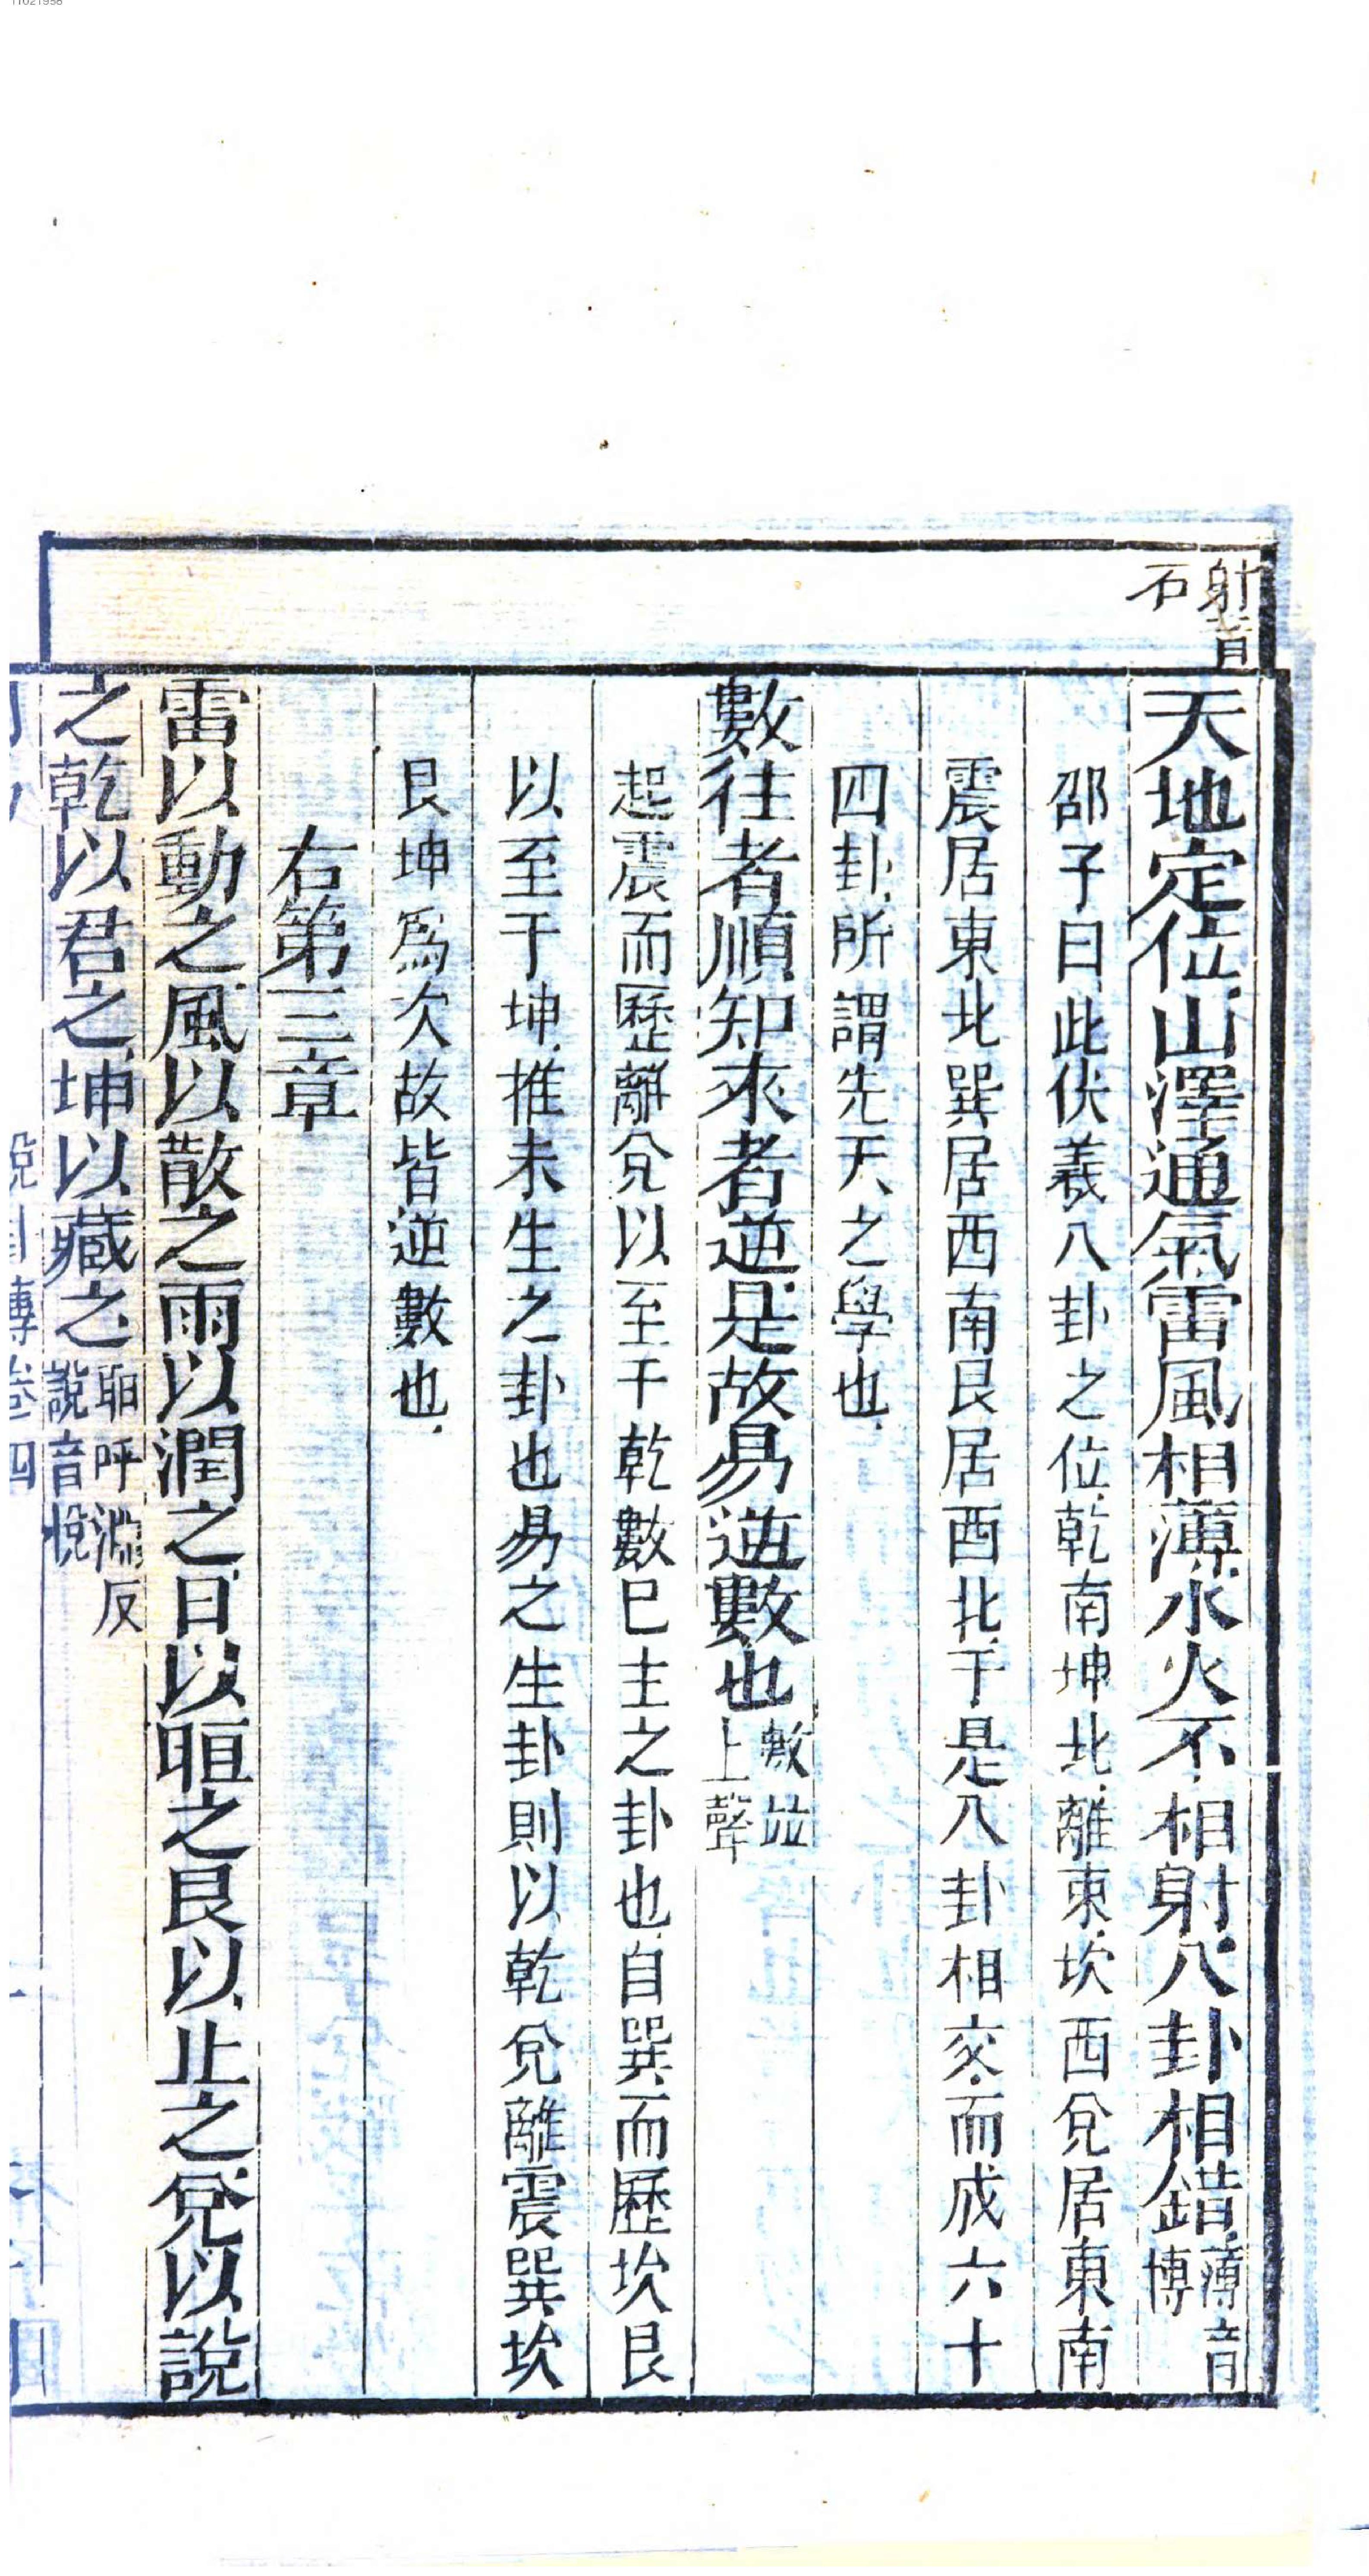 11021958
射音
石
天地定位山澤通氣雷風相薄水火不相射八卦相錯薄音博
邵子曰此伏羲八卦之位乾南坤北離東坎西兌居東南
震居東北巽居西南艮居西北于是八卦相交而成六十
四卦所謂先天之學也
數往者順知來者逆是故易逆數也數並上聲
起震而歷離兌以至于乾數已生之卦也自巽而歷坎艮
以至于坤推未生之卦也易之生卦則以乾兌離震巽坎
艮坤爲次故皆逆數也
右第三章
雷以動之風以散之雨以潤之日以晅之艮以止之兌以說
之乾以君之坤以藏之晅呼淵反說音悅
說卦傳卷四